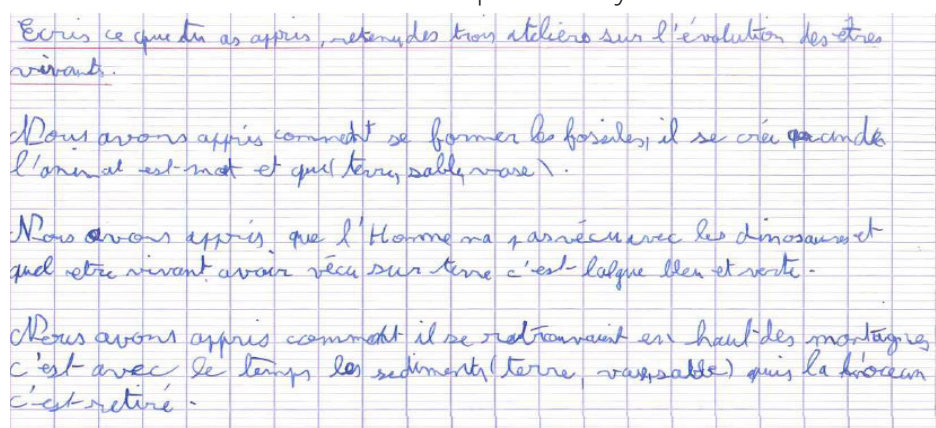 Ecris ce que tu as appris, retenu des trois ateliers sur l'évolution des êtres
vivants.
Nous avons appris comment se former les fossiles, il se crée quande
l'animal est mort et que (terre, sable, vase).
Nous avons appris que l'Homme na pas vécu avec les dinosaures et
quel etre vivant avoir vécu sur terre c'est lalgue bleu et verte.
Nous avons appris comment il se retrouvaint en haut des montagnes
c'est avec le temps les sediments (terre, vase, sable) puis la océan
c'est retiré.